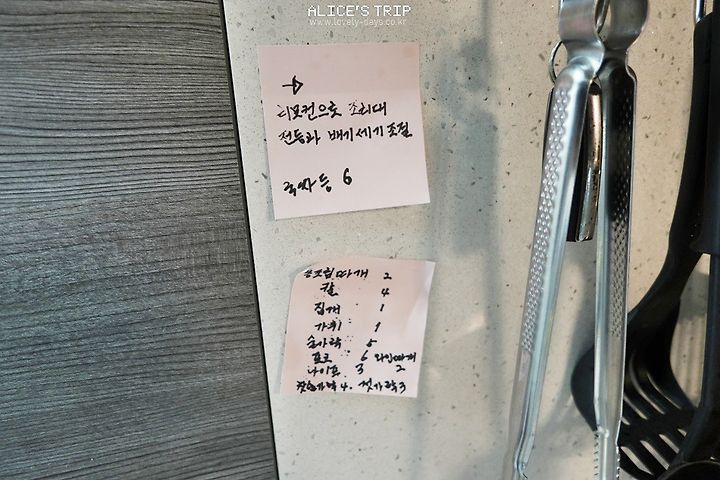 ALICE'S TRIP
www.lovely-days.co.kr
리모컨으로 조리대
전등과 배기세기 조절
국자 등 6
통조림따개 2
칼 4
집게 1
가위 1
숟가락 5
포크 6 와인따개
나이프 3 2
찻숟가락 4. 젓가락 3